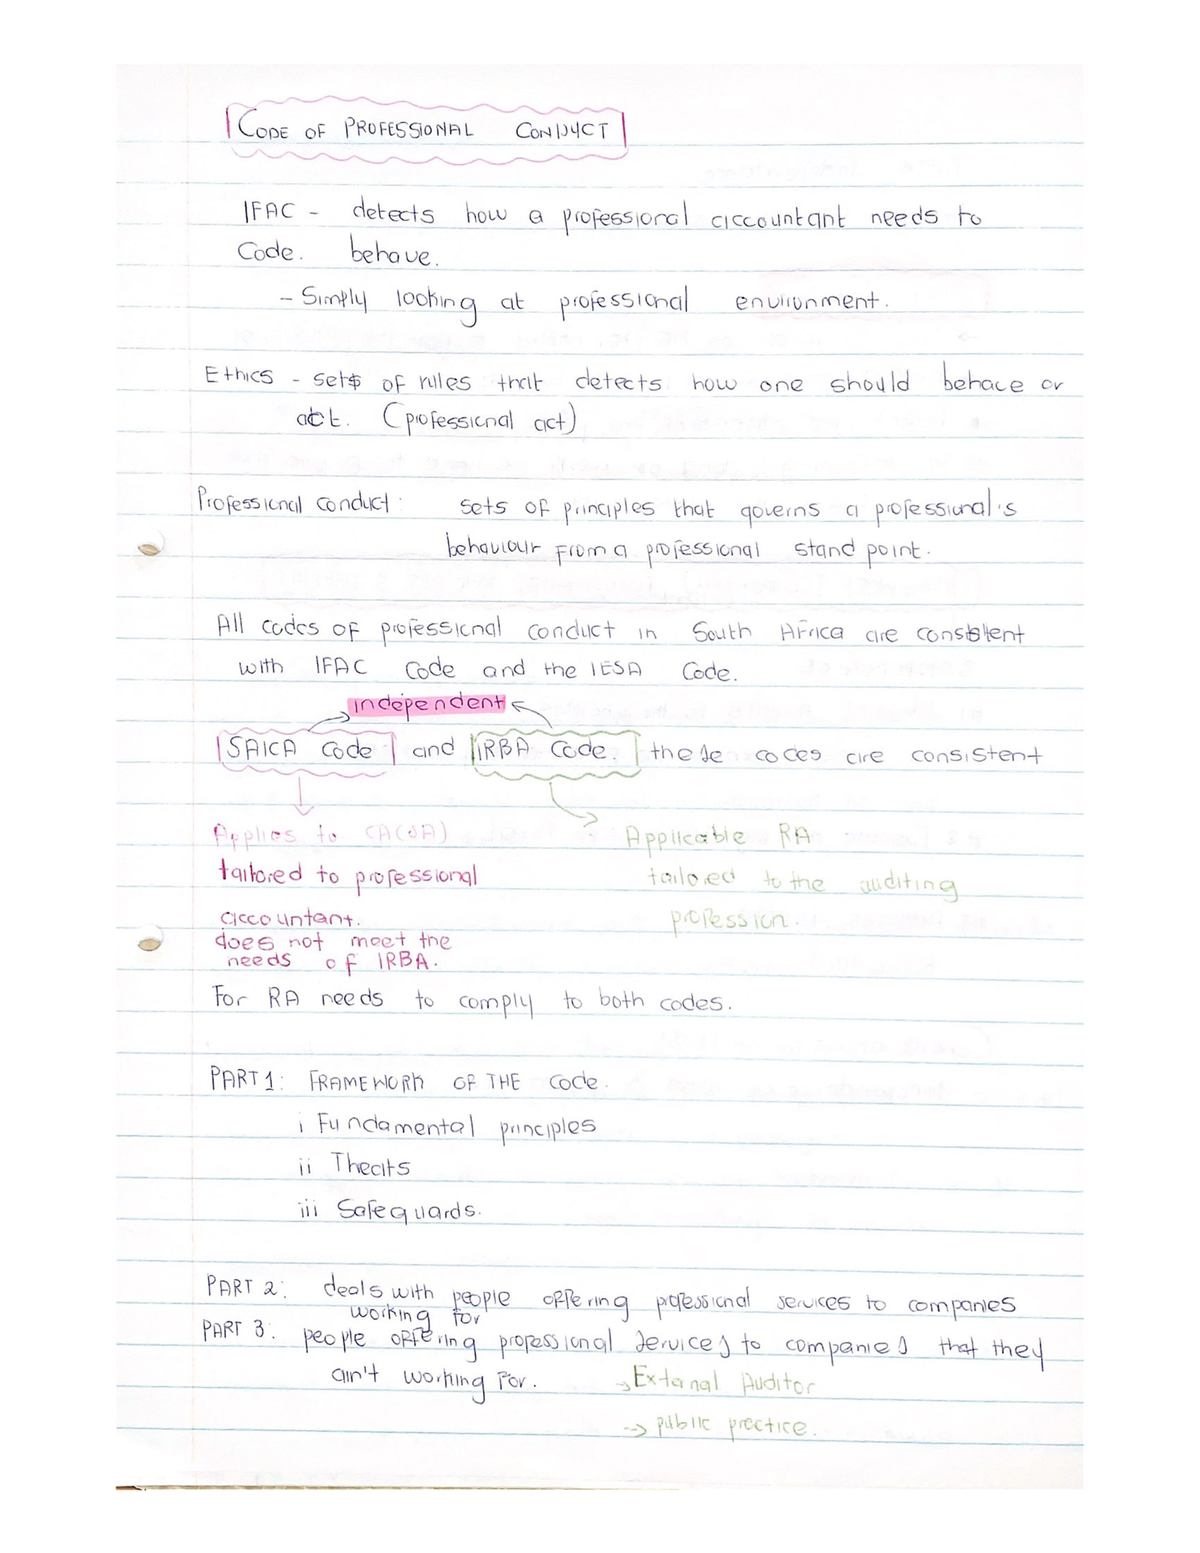 CODE OF PROFESSIONAL CONDUCT
IFAC - detects how a professional accountant needs to
Code. behave.
- Simply looking at professional environment.
Ethics - sets of rules that detects how one should behave or
act. (professional act)
Professional conduct: sets of principles that governs a professional's
behaviour from a professional stand point.
All codes of professional conduct in South Africa are consistent
with IFAC Code and the IESA Code.
independent
SAICA Code and IRBA Code. these codes are consistent
Applies to CA(SA) Applicable RA
tailored to professional tailored to the auditing
accountant. profession.
does not meet the
needs of IRBA.
For RA needs to comply to both codes.
PART 1: FRAMEWORK OF THE Code.
i Fundamental principles
ii Theats
iii Safeguards.
PART 2: deals with people offering professional services to companies
working for
PART 3: people offering professional services to companies that they
ain't working for. → External Auditor
→ public practice.